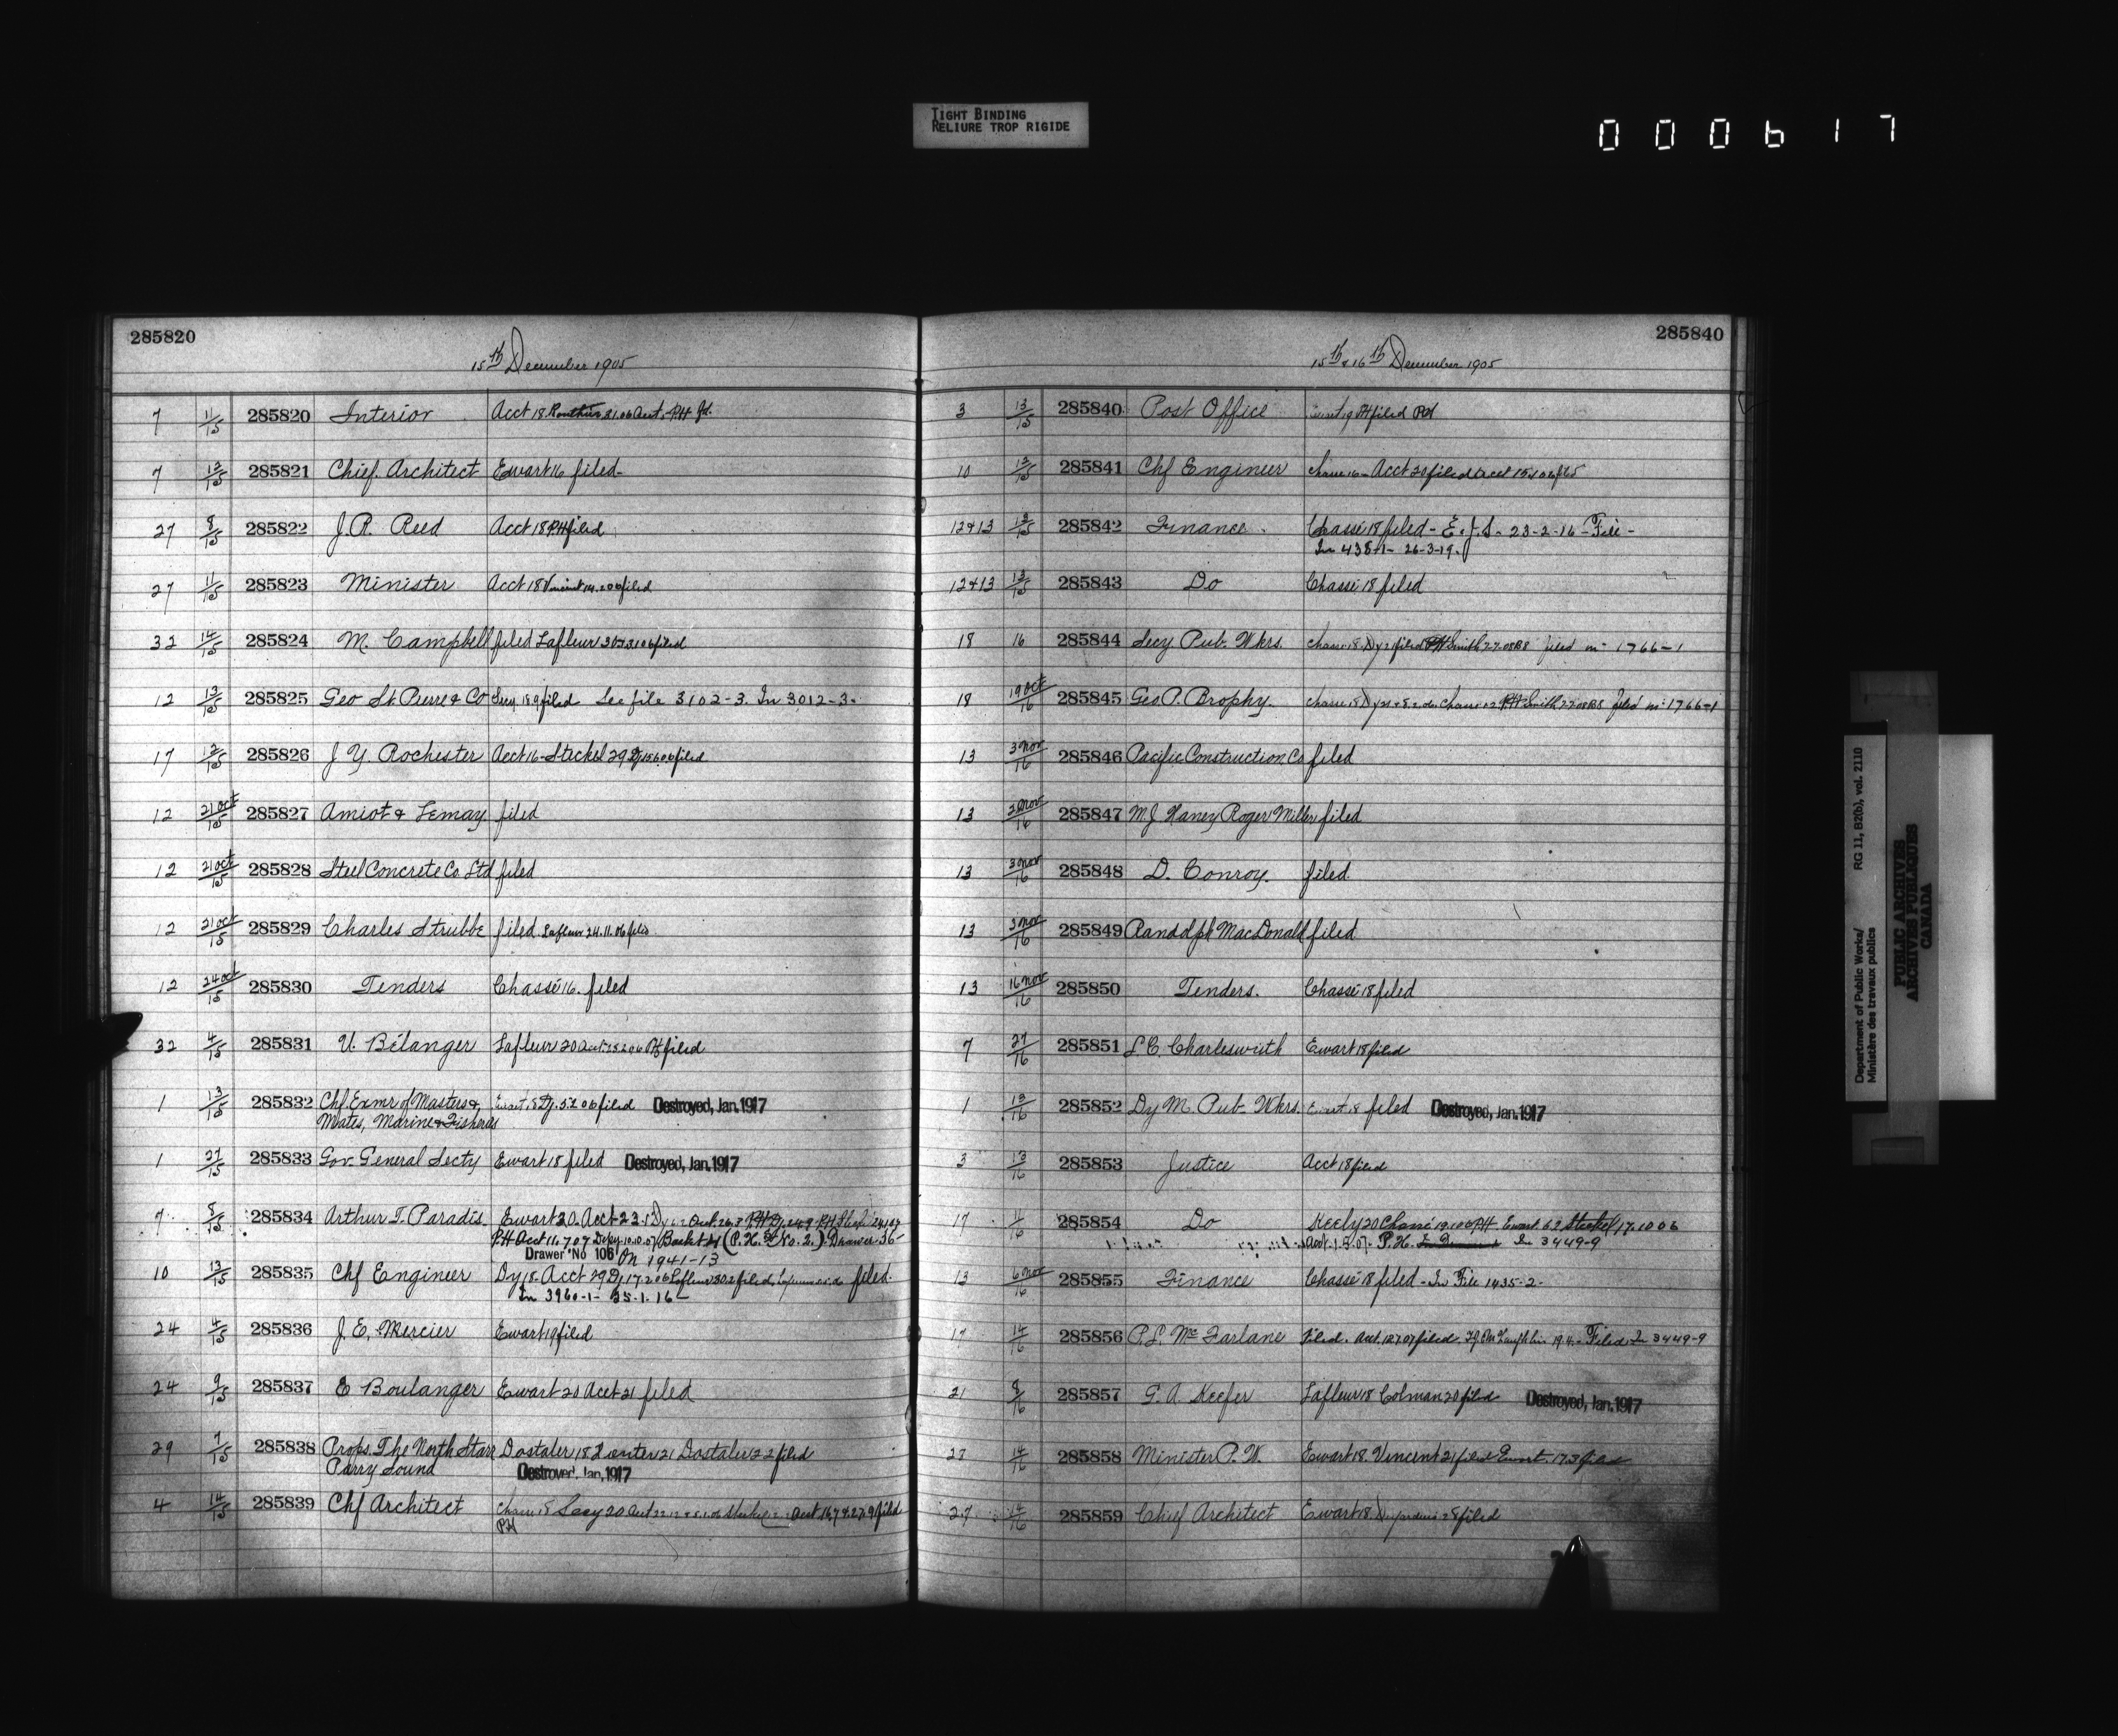 TIGHT BINDING
RELIURE TROP RIGIDE
000617
285820
15th December 1905
7 11/15 285820 Interior Acct 18 filed
7 13/15 285821 Chief Architect Ewart 16 filed-
27 8/15 285822 J.R. Reed Acct 18 PH filed
27 11/15 285823 Minister Acct 18 Vincent filed
32 14/15 285824 M. Campbell filed Lafleur filed
12 13/15 285825 Geo St. Pierre & Co filed See file 3102-3. In 3012-3-
17 12/15 285826 J Y. Rochester Acct 16- Steckel 29 Dy filed
12 21 Oct/15 285827 Amiot & Lemay filed
12 21 Oct/15 285828 Steel Concrete Co Ltd filed
12 21 Oct/15 285829 Charles Strubbe filed Lafleur 24.11.06 filed
12 24 Oct/15 285830 Tenders Chassé 16. filed
32 4/15 285831 U. Bélanger Lafleur 20 PH filed
1 13/15 285832 Chf Exmr of Masters & Ewart 18 Dy. 5.2.06 filed Destroyed, Jan. 1917
Mates, Marine & Fisheries
1 27/15 285833 Gov. General Secty Ewart 18 filed Destroyed, Jan. 1917
7 8/15 285834 Arthur T. Paradis Ewart 20. Acct 23.
PH Acct 16.7.07 Basket (P.H. No. 2.) Drawer 36-
Drawer No 106 On 1941-13
10 13/15 285835 Chf Engineer Dy 18 Acct 29 Dy 17.2.06 Lafleur filed
In 3960-1- 25-1-16-
24 4/15 285836 J. E. Mercier Ewart 19 filed
24 9/15 285837 E Boulanger Ewart 20 Acct 21 filed
29 7/15 285838 Props. The North Starr Dostaler 18 Dostaler 22 filed
Parry Sound Destroyed, Jan. 1917
4 14/15 285839 Chf Architect Chassé 18 Secy 20 filed
PH
285840
15th & 16th December 1905
3 13/15 285840 Post Office Ewart 19 PH filed
10 13/15 285841 Chf Engineer Chassé 16- Acct 20 filed
12&13 13/15 285842 Finance Chassé 18 filed - E.J.S- 23-2-16- File-
In 438-1- 26-3-19.
12&13 13/15 285843 Do Chassé 18 filed
18 16 285844 Secy Pub. Wkrs. Chassé 18. filed PH Smith filed in 1766-1
18 19 Oct/16 285845 Geo. P. Brophy. Chassé 18 PH Smith filed in 1766-1
13 3 Nov/16 285846 Pacific Construction Co filed
13 2 Nov/16 285847 M.J Haney Roger Miller filed
13 3 Nov/16 285848 D. Conroy. filed.
13 3 Nov/16 285849 Randolph MacDonald filed
13 16 Nov/16 285850 Tenders. Chassé 18 filed
7 27/16 285851 L C. Charlesworth Ewart 18 filed
1 12/16 285852 Dy M. Pub. Wkrs. Ewart 18 filed Destroyed, Jan. 1917
3 13/16 285853 Justice Acct 18 filed
17 11/16 285854 Do Keely 20 Chassé 19.1.06 PH Ewart 6.2 Steckel 17.10 06
Acct. 1.8.07. P.H. In 3449-9
13 6 Nov/16 285855 Finance Chassé 18 filed - In File 1435-2-
17 14/16 285856 P.L. McFarlane Filed. Acct. 12.7.07 filed. Filed In 3449-9
21 8/16 285857 G. A. Keefer Lafleur 18 Colman 20 filed Destroyed, Jan. 1917
27 14/16 285858 Minister P. W. Ewart 18. Vincent 21 filed Ewart. 17.3 filed
27 14/16 285859 Chief Architect Ewart 18. filed
Department of Public Works/ RG 11, B2(b), vol. 2110
Ministère des travaux publics
PUBLIC ARCHIVES
ARCHIVES PUBLIQUES
CANADA